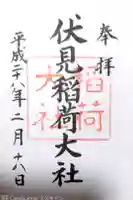 奉拝
伏見稲荷大社
平成二十八年二月十八日
稲荷
大社